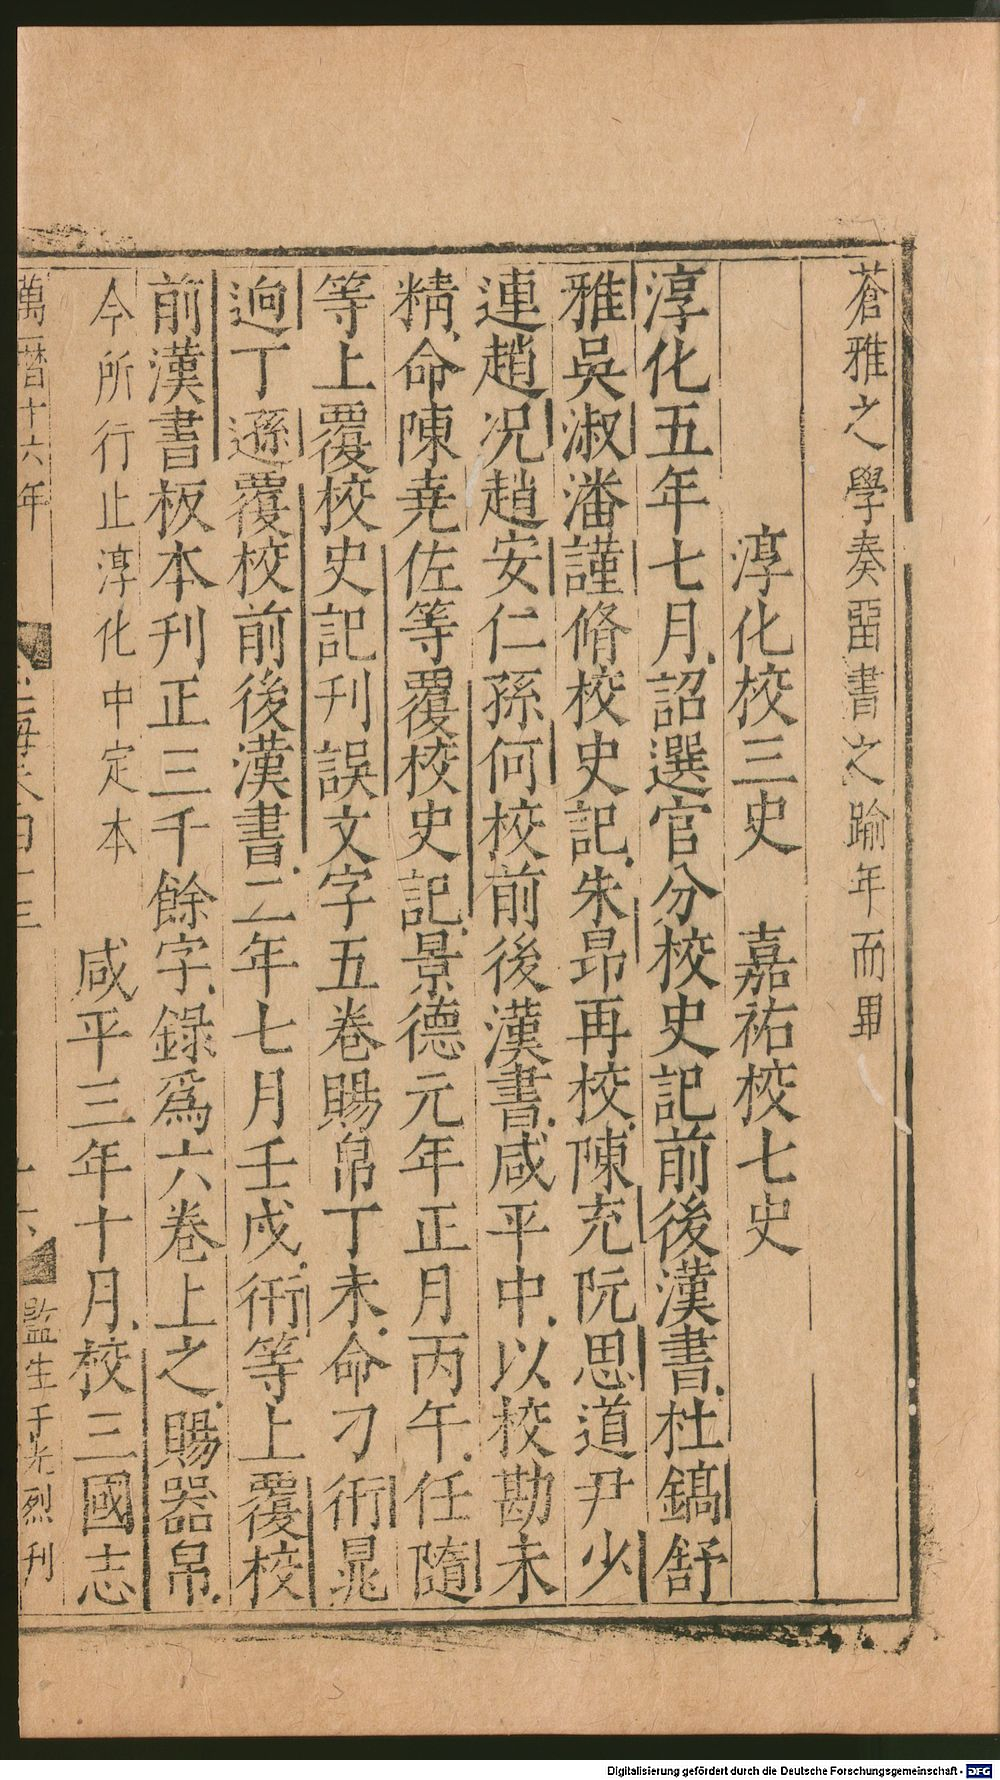 蒼雅之學奏畱書之踰年而畢
淳化校三史　嘉祐校七史
淳化五年七月詔選官分校史記前後漢書杜鎬舒
雅吳淑潘謹脩校史記朱昂再校陳充阮思道尹少
連趙況趙安仁孫何校前後漢書咸平中以校勘未
精命陳堯佐等覆校史記景德元年正月丙午任隨
等上覆校史記刊誤文字五卷賜帛丁未命刁衎晁
逈丁遜覆校前後漢書二年七月壬戌衎等上覆校
前漢書板本刊正三千餘字錄爲六卷上之賜器帛
今所行止淳化中定本　咸平三年十月校三國志
萬曆十六年
監生于光烈刊
Digitalisierung gefördert durch die Deutsche Forschungsgemeinschaft - DFG